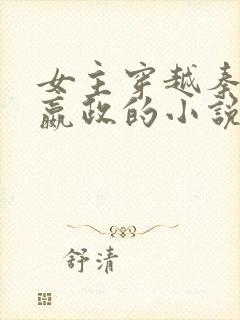 女主穿越秦
嬴政的小说
舒清